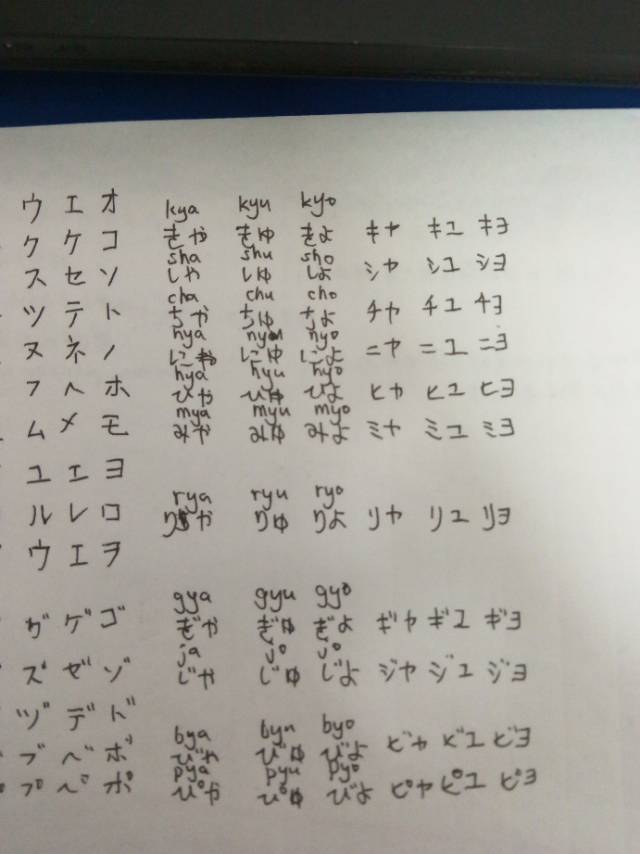 ウ エ オ kya kyu kyo
ク ケ コ きゃ きゅ きょ キャ キュ キョ
sha shu sho
ス セ ソ しゃ しゅ しょ シャ シュ ショ
cha chu cho
ツ テ ト ちゃ ちゅ ちょ チャ チュ チョ
nya nyu nyo
ヌ ネ ノ にゃ にゅ にょ ニャ ニュ ニョ
hya hyu hyo
フ ヘ ホ ひゃ ひゅ ひょ ヒャ ヒュ ヒョ
mya myu myo
ム メ モ みゃ みゅ みょ ミャ ミュ ミョ
ユ エ ヨ
rya ryu ryo
ル レ ロ りゃ りゅ りょ リャ リュ リョ
ウ エ ヲ
gya gyu gyo
グ ゲ ゴ ぎゃ ぎゅ ぎょ ギャ ギュ ギョ
ja jo jo
ズ ゼ ゾ じゃ じゅ じょ ジャ ジュ ジョ
ヅ デ ド
bya byu byo
ブ ベ ボ びゃ びゅ びょ ビャ ビュ ビョ
pya pyu pyo
プ ペ ポ ぴゃ ぴゅ ぴょ ピャ ピュ ピョ